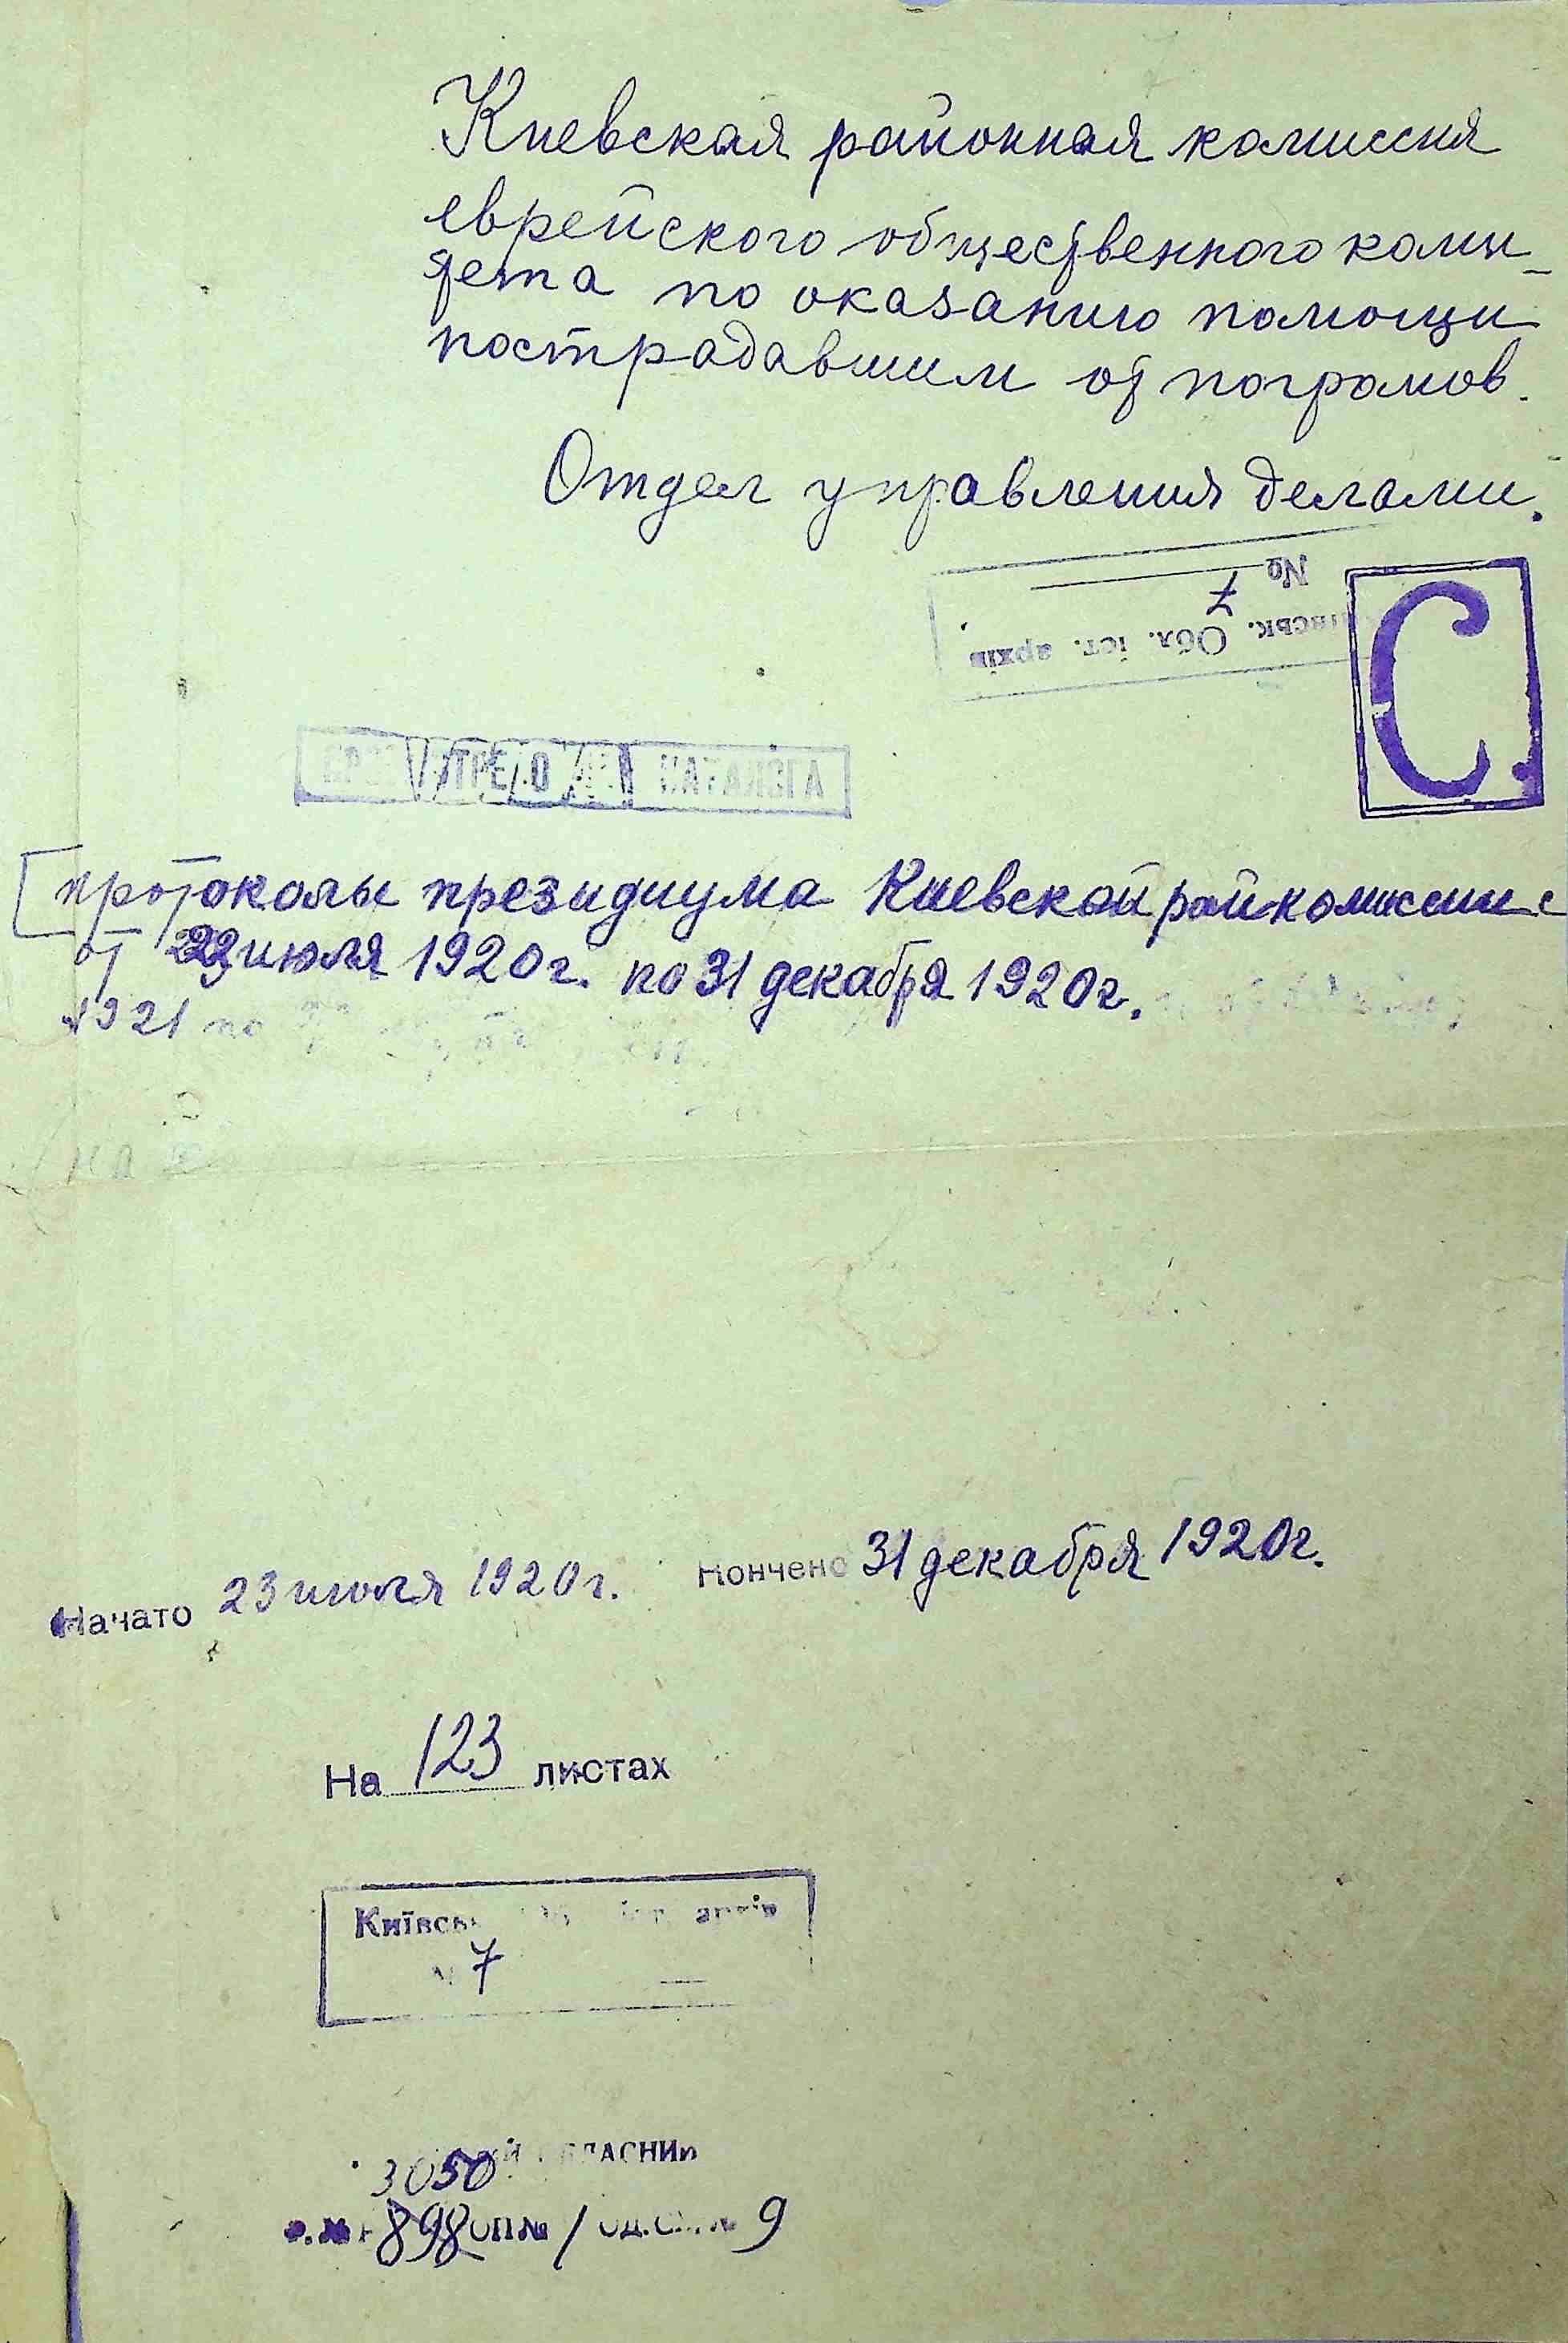 Киевская районная комиссия
еврейского общественного коми-
тета по оказанию помощи
пострадавшим от погромов.
Отдел управления делами.
№ 7
Обл. іст. архів
С
КАТАЛОГА
протоколы президиума Киевской райкомиссии с
от 23 июля 1920г. по 31 декабря 1920г.
1921 по
Начато 23 июля 1920г. Кончено 31 декабря 1920г.
На 123 листах
Київськ. іст. архів
7
3050
898 ОП № 1 9